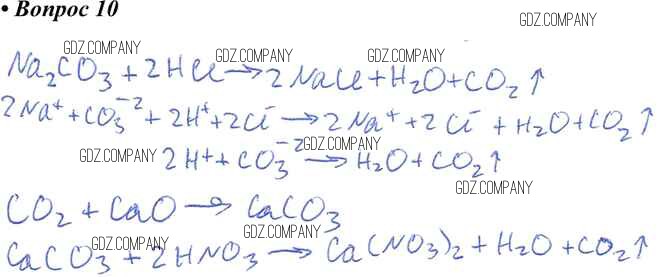 • Вопрос 10
GDZ.COMPANY
GDZ.COMPANY GDZ.COMPANY GDZ.COMPANY
Na₂CO₃ + 2HCl → 2NaCl + H₂O + CO₂↑
2Na⁺ + CO₃⁻² + 2H⁺ + 2Cl⁻ → 2Na⁺ + 2Cl⁻ + H₂O + CO₂↑
GDZ.COMPANY GDZ.COMPANY
2H⁺ + CO₃⁻² → H₂O + CO₂↑
GDZ.COMPANY
CO₂ + CaO → CaCO₃
GDZ.COMPANY GDZ.COMPANY
CaCO₃ + 2HNO₃ → Ca(NO₃)₂ + H₂O + CO₂↑